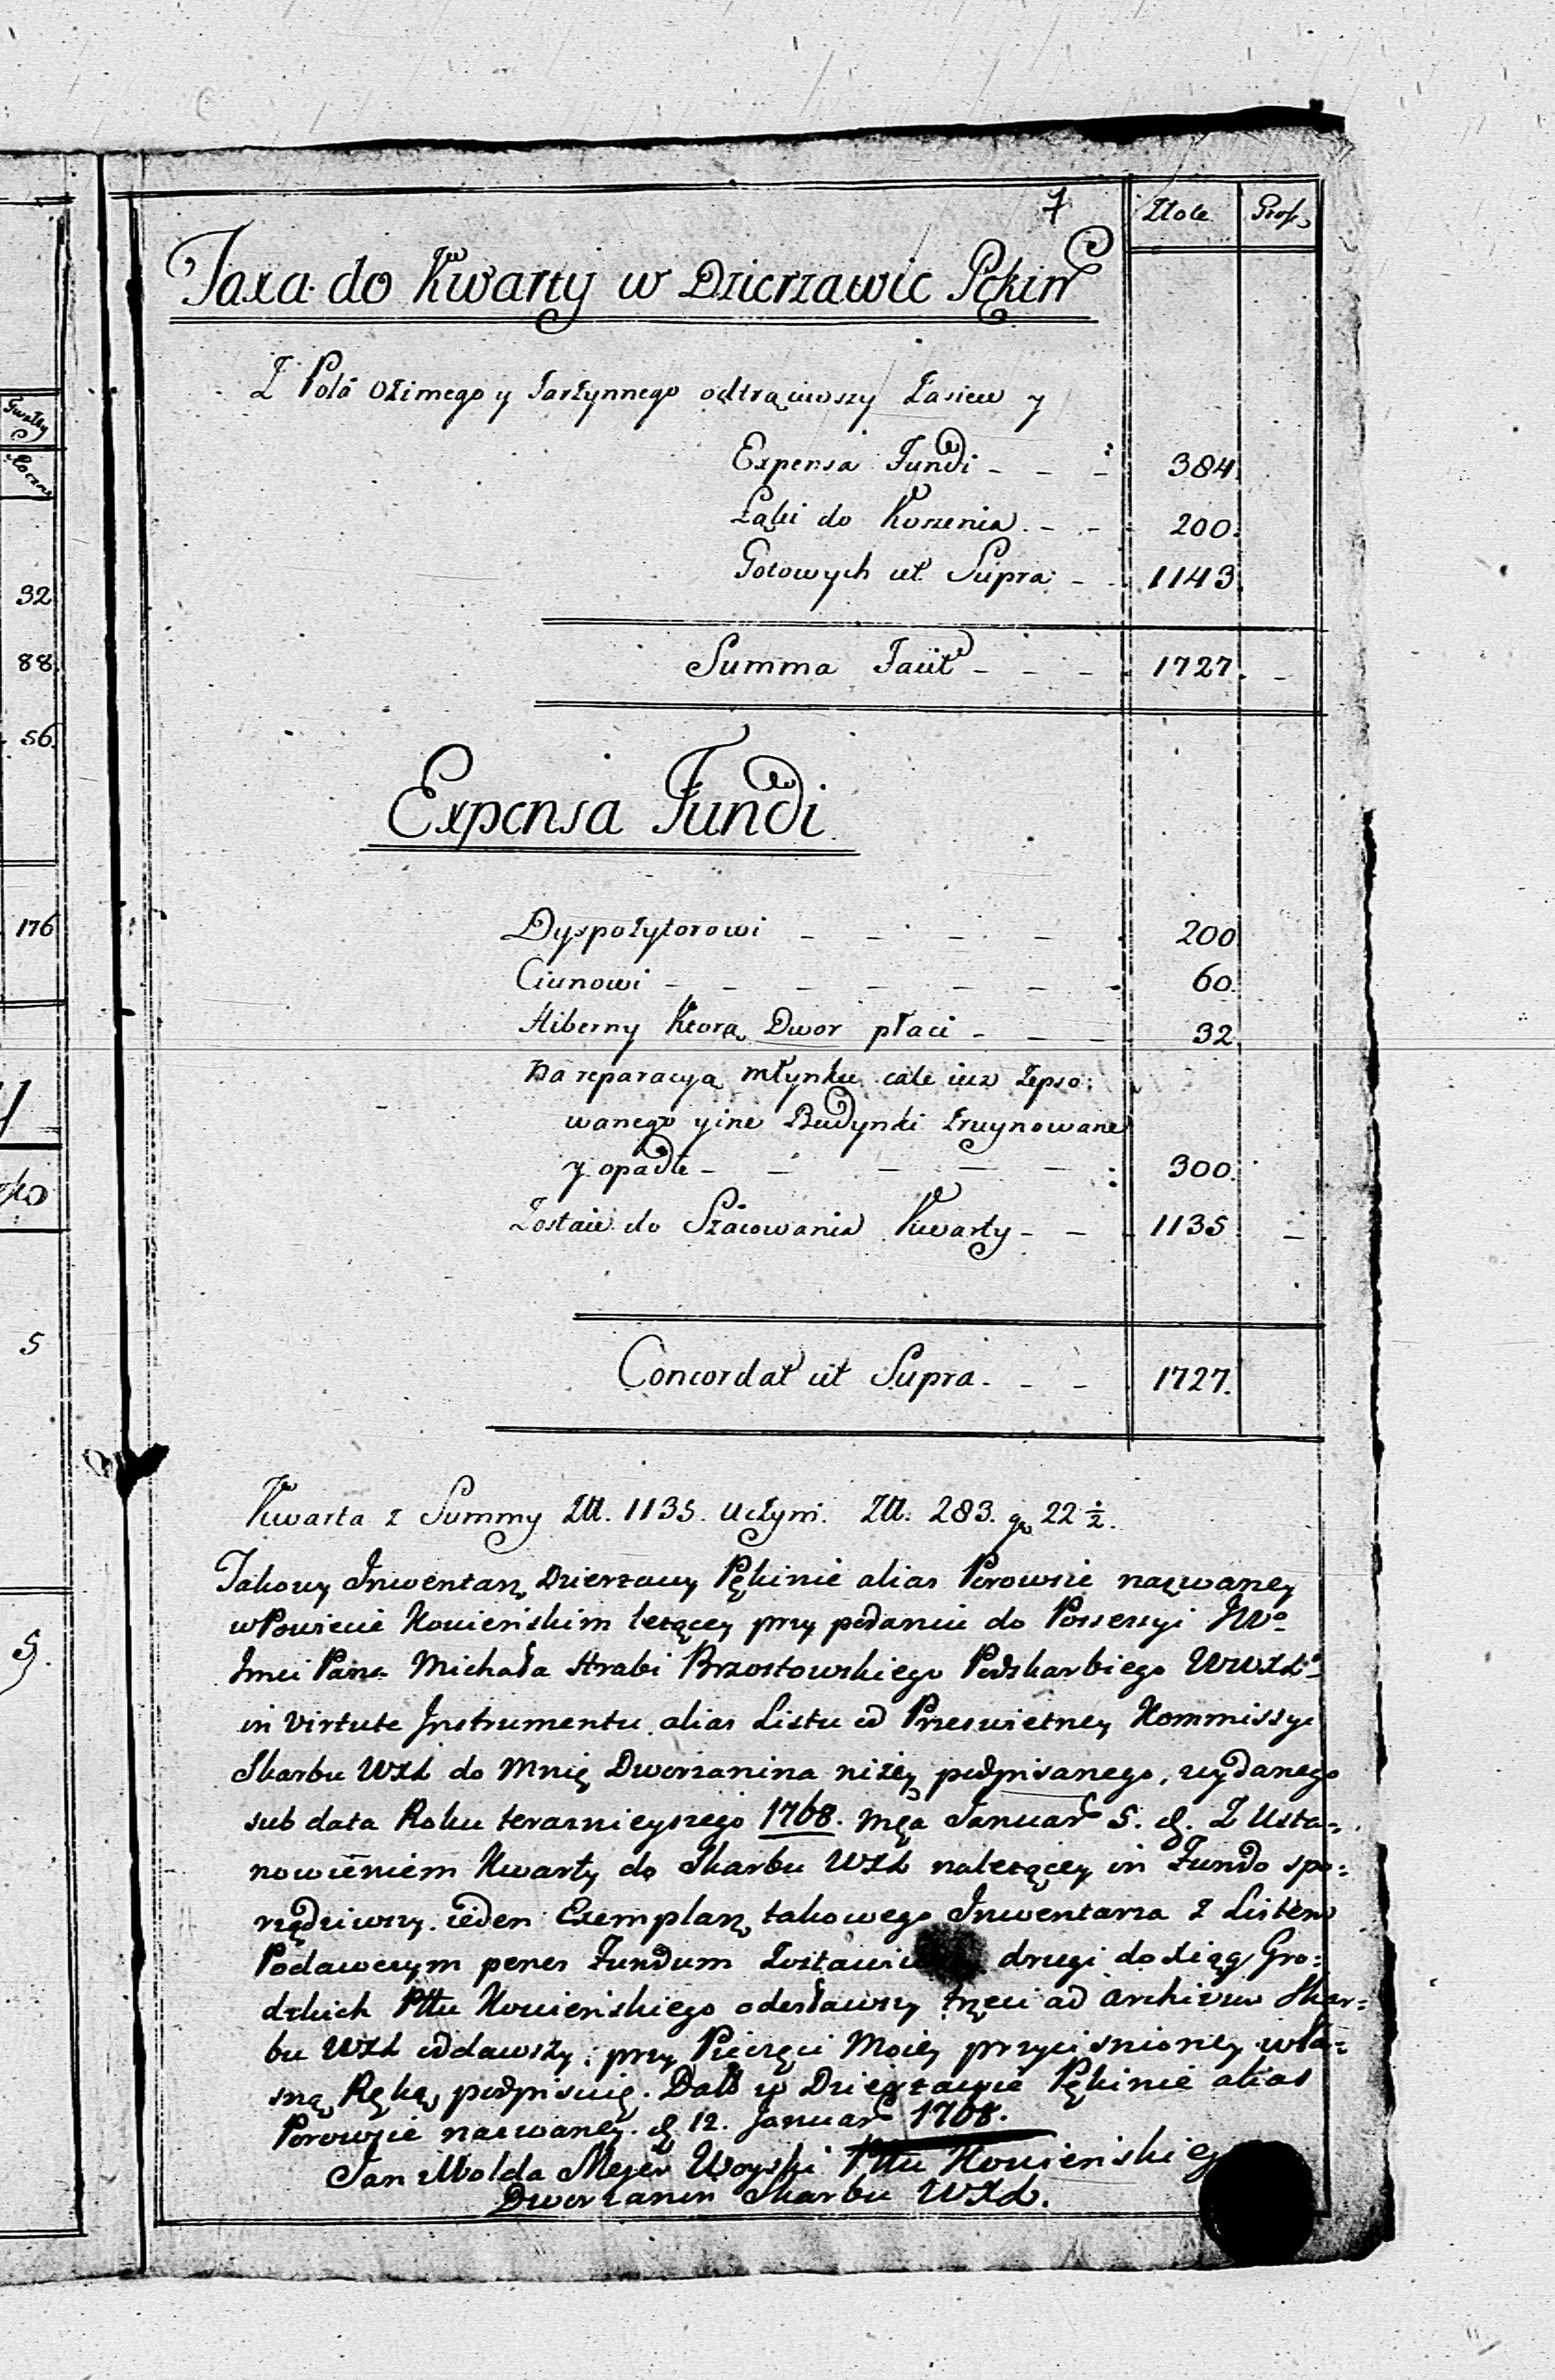 Gwałty
Roczne
32
88.
56.
176
5
5.
7
Złote
Grosz
Taxa do Kwarty w Dzierzawie Pękin
Z Pola Ozimego y Jarzynnego odtrąciwszy Zasiew y
Expensa Fundi - - - 384.
Łąki do Koszenia - - - 200.
Gotowych ut Supra - - 1143.
Summa Facit - - - 1727. -
Expensa Fundi
Dyspozytorowi - - - - 200
Ciunowi - - - - - - 60.
Hiberny Ktorą Dwor płaci - - - 32
Na reparacyą młynku cale iuz Zepso:
wanego y ine Budynki Zruynowane
y opadłe - - - - - : 300.
Zostaie do Szacowania Kwarty - - - 1135. -
Concordat ut Supra - - - 1727.
Kwarta z Summy Zll. 1135. Uczyni. Zll. 283. gr 22 ½.
Takowy Inwentarz Dzierzawy Pękinie alias Porowsie nazwaney
w Powiecie Kowieńskim lezącey przy podaniu do Possessyi JWo
Jmci Pana Michała Hrabi Brzostowskiego Podskarbiego WWXLo
in virtute Instrumentu alias Listu od Przeswietney Kommissyi
Skarbu WXL do Mnie Dworzanina nizey podpisanego, wydanego
sub data Roku teraznieyszego 1768. Mca Januar 5. d. Z Usta-
nowieniem Kwarty do Skarbu WXL nalezącey in Fundo spo:
rządziwszy ieden Exemplarz takowego Inwentarza z Listem
Podawczym penes Fundum drugi do Xiąg Gro:
dzkich Pttu Kowieńskiego odesławszy trzeci ad Archivum Skar:
bu WXL oddawszy, przy Pieczęci Moiey przycisnioney wła:
sną Ręką podpisuię. Datt w Dzierzawie Pękinie alias
Porowsie nazwaney. d 12. Januar 1768.
Jan Mejer Woyski Pttu Kowieńskieg
Dworzanin Skarbu WXL.